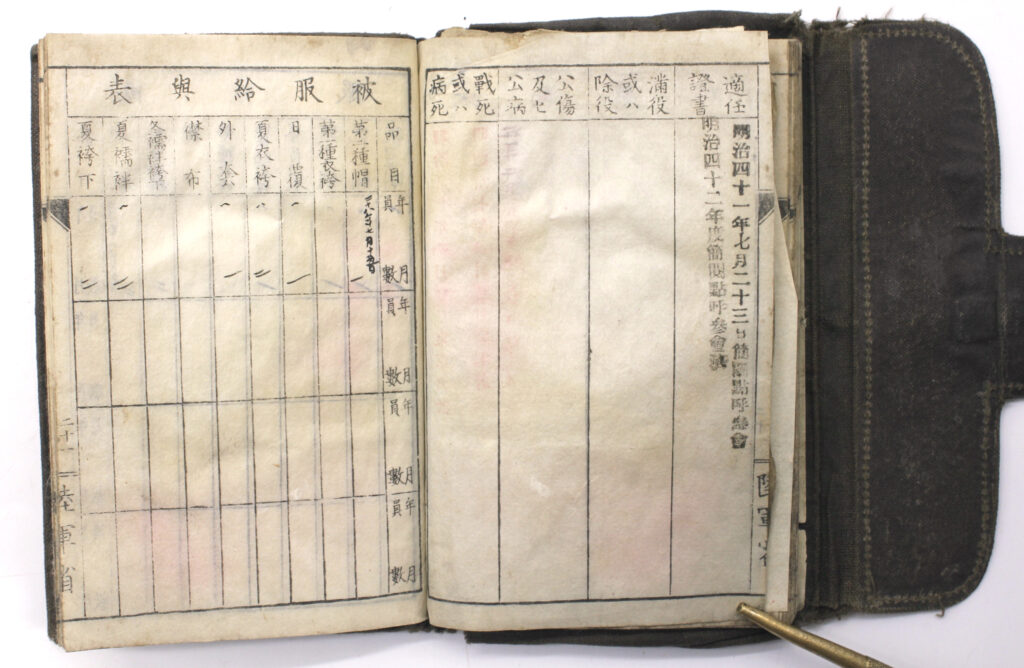 適任
證書
明治四十一年七月二十三日簡閲點呼參會
明治四十二年度簡閲點呼參會濟
滿役
或ハ
除役
公傷
及ヒ
公病
戰死
或ハ
病死
陸軍省
被服給與表
品目
第二種帽
第二種衣袴
日覆
夏衣袴
外套
襟布
夏襦袢
夏袴下
年月
員數
年月
員數
年月
員數
年月
員數
陸軍省